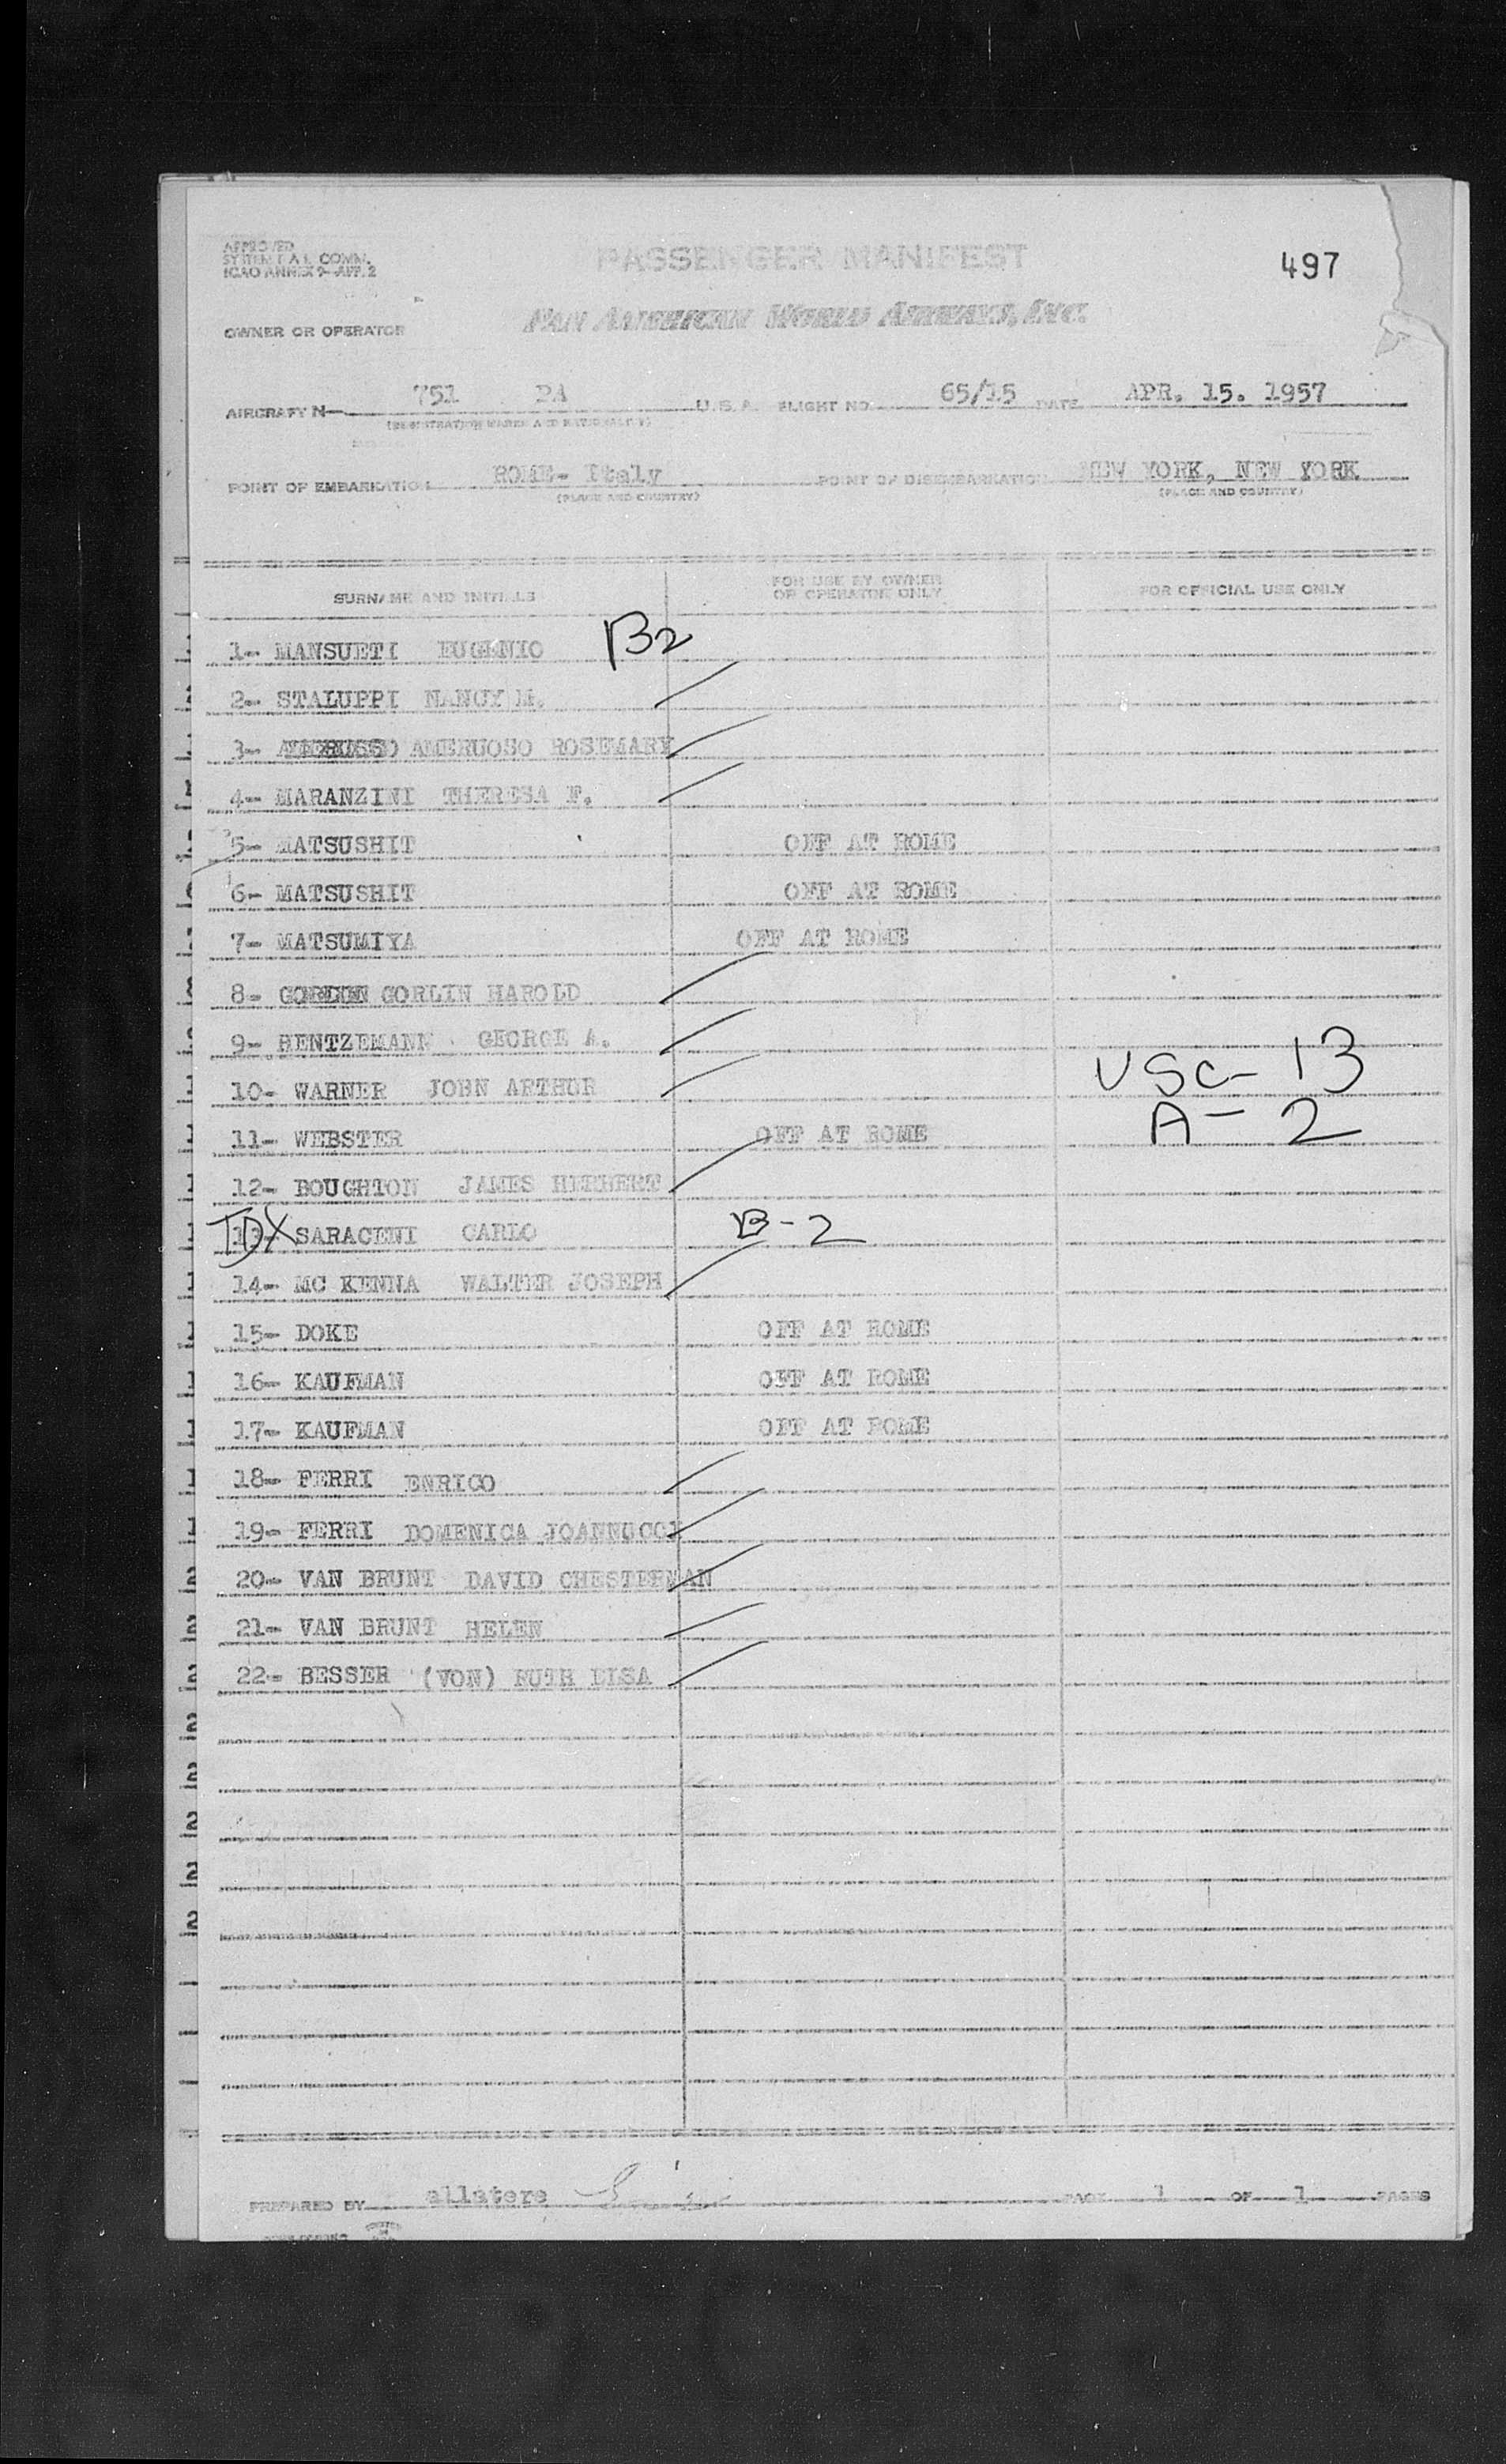 APPROVED
SYSTEM F A L COMM.
ICAO ANNEX 9-APP. 2
PASSENGER MANIFEST
497
OWNER OR OPERATOR
PAN AMERICAN WORLD AIRWAYS, INC.
AIRCRAFT N- 751 PA U.S.A. FLIGHT NO. 65/15 DATE APR. 15. 1957
(REGISTRATION MARKS AND NATIONALITY)
POINT OF EMBARKATION ROME- Italy POINT OF DISEMBARKATION NEW YORK, NEW YORK
(PLACE AND COUNTRY) (PLACE AND COUNTRY)
SURNAME AND INITIALS FOR USE BY OWNER OR OPERATOR ONLY FOR OFFICIAL USE ONLY
1- MANSUETI EUGENIO B2
2- STALUPPI NANCY M.
3- AMBRUOSO ROSEMARY
4- MARANZINI THERESA F.
5- MATSUSHIT OFF AT ROME
6- MATSUSHIT OFF AT ROME
7- MATSUMIYA OFF AT ROME
8- GORLIN HAROLD
9- HENTZEMANN GEORGE A.
10- WARNER JOHN ARTHUR USC- 13
11- WEBSTER OFF AT ROME A- 2
12- BOUGHTON JAMES HERBERT
13- SARACENI CARLO B-2
14- MC KENNA WALTER JOSEPH
15- DOKE OFF AT ROME
16- KAUFMAN OFF AT ROME
17- KAUFMAN OFF AT ROME
18- FERRI ENRICO
19- FERRI DOMENICA JOANNUCCI
20- VAN BRUNT DAVID CHESTERMAN
21- VAN BRUNT HELEN
22- BESSER (VON) RUTH LISA
PREPARED BY allatere PAGE 1 OF 1 PAGES